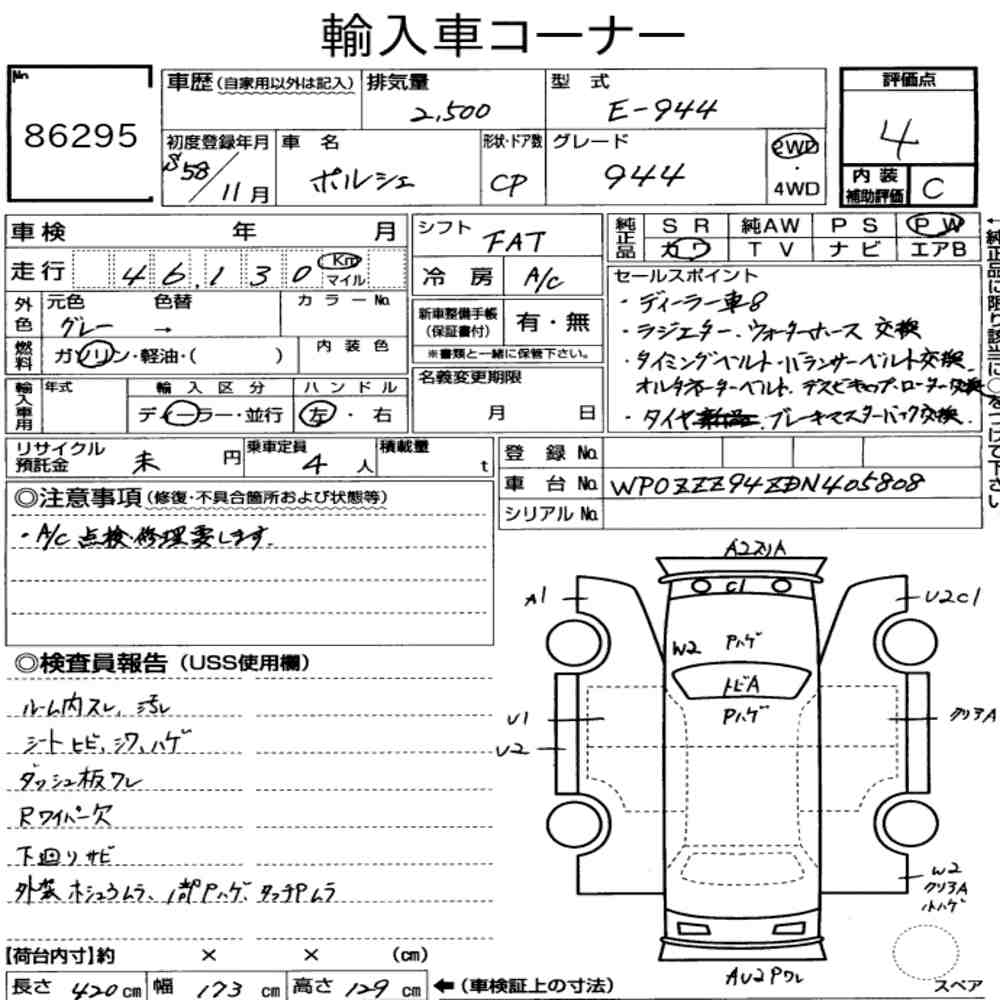 輸入車コーナー
No.
86295
車歴(自家用以外は記入)
排気量
2,500
型 式
E-944
評価点
4
初度登録年月
S58/11月
車 名
ポルシェ
形状・ドア数
CP
グレード
944
2WD
・
4WD
内 装
補助評価
C
車検 年 月
シフト
FAT
純正品
S R 純AW P S P W
カワ T V ナビ エアB
走行 46,130 Km
マイル
冷 房 A/C
セールスポイント
・ディーラー車8
・ラジエター、ウォーターホース 交換
・タイミングベルト・バランサーベルト交換
オルタネーターベルト、デスビキャップ・ローター交換
・タイヤ新品、ブレーキマスターバック交換
←純正品に限り該当に○をつけて下さい
外色
元色 色替 カラーNo.
グレー →
新車整備手帳
(保証書付)
有・無
※書類と一緒に保管下さい。
燃料
ガソリン・軽油・( )
内 装 色
名義変更期限
月 日
輸入車用
年式
輸 入 区 分
ディーラー・並行
ハ ン ド ル
左・右
リサイクル
預託金
未 円
乗車定員
4 人
積載量
t
登 録 No.
車 台 No. WP0ZZZ94ZDN405808
シリアルNo.
◎注意事項(修復・不具合箇所および状態等)
・A/C 点検・修理要します。
◎検査員報告(USS使用欄)
ルーム内スレ、汚レ
シートヒビ、シワ、ハゲ
ダッシュ板ワレ
Rワイパー欠
下廻りサビ
外装ホシュウムラ、1部Pハゲ、タッチPムラ
A2スリA
C1
A1
U2C1
W2
Pハゲ
トビA
Pハゲ
U1
U2
クリアA
W2
クリアA
小ハゲ
AU2Pワレ
スペア
【荷台内寸】約 × × (cm)
長さ 420cm 幅 173 cm 高さ 129 cm ←(車検証上の寸法)